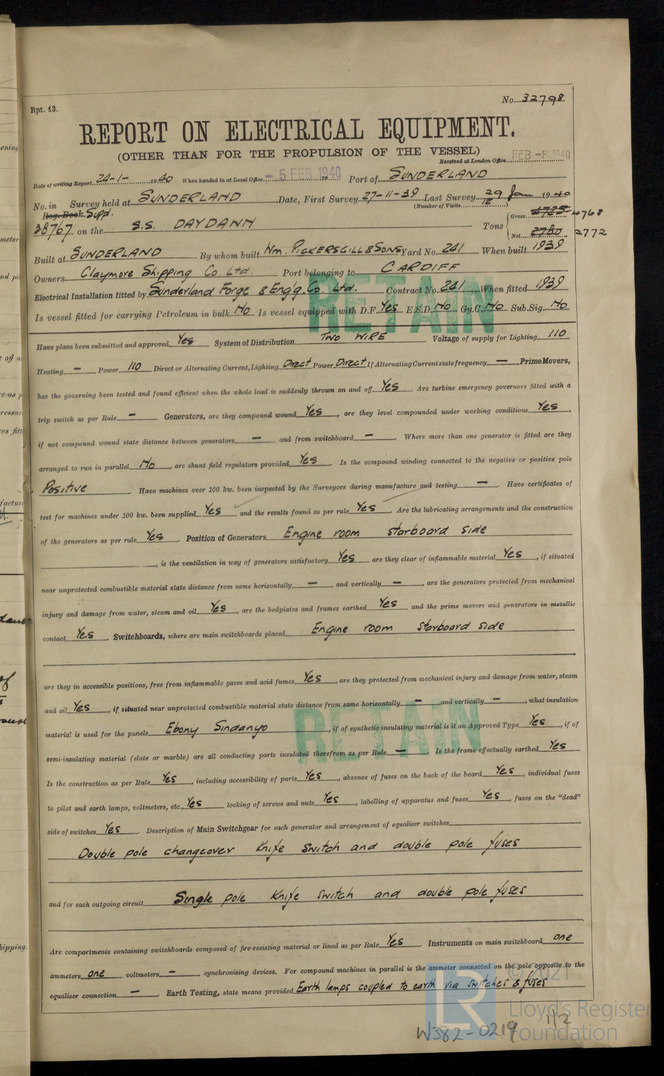 Rpt. 13.
No. 32798
REPORT ON ELECTRICAL EQUIPMENT.
(OTHER THAN FOR THE PROPULSION OF THE VESSEL)
Received at London Office FEB -8 1940
Date of writing Report 24-1- 1940 When handed in at Local Office - 5 FEB 1940 Port of SUNDERLAND
No. in Survey held at SUNDERLAND Date, First Survey 27-11-39 Last Survey 29 Jan 1940
Reg. Book. Suppl. (Number of Visits 18)
38767 on the S.S. DAYDAWN Tons { Gross 4768
Net 2772
Built at SUNDERLAND By whom built Wm. PICKERSGILL & SONS Yard No. 241 When built 1939
Owners Claymore Shipping Co Ltd. Port belonging to CARDIFF
Electrical Installation fitted by Sunderland Forge & Eng'g. Co. Ltd. Contract No. 241 When fitted 1939
Is vessel fitted for carrying Petroleum in bulk No Is vessel equipped with D.F. Yes E.S.D. No Gy.C. No Sub.Sig. No
RETAIN
Have plans been submitted and approved Yes System of Distribution TWO WIRE Voltage of supply for Lighting 110
Heating — Power 110 Direct or Alternating Current, Lighting Direct Power Direct If Alternating Current state frequency — Prime Movers,
has the governing been tested and found efficient when the whole load is suddenly thrown on and off Yes Are turbine emergency governors fitted with a
trip switch as per Rule — Generators, are they compound wound Yes, are they level compounded under working conditions Yes,
if not compound wound state distance between generators — and from switchboard — Where more than one generator is fitted are they
arranged to run in parallel No, are shunt field regulators provided Yes Is the compound winding connected to the negative or positive pole
Positive Have machines over 100 kw. been inspected by the Surveyors during manufacture and testing — Have certificates of
test for machines under 100 kw. been supplied Yes and the results found as per rule Yes Are the lubricating arrangements and the construction
of the generators as per rule Yes Position of Generators Engine room starboard side
, is the ventilation in way of generators satisfactory Yes are they clear of inflammable material Yes, if situated
near unprotected combustible material state distance from same horizontally — and vertically —, are the generators protected from mechanical
injury and damage from water, steam and oil Yes are the bedplates and frames earthed Yes and the prime movers and generators in metallic
contact Yes. Switchboards, where are main switchboards placed Engine room starboard side
are they in accessible positions, free from inflammable gases and acid fumes Yes, are they protected from mechanical injury and damage from water, steam
and oil Yes, if situated near unprotected combustible material state distance from same horizontally — and vertically —, what insulation
material is used for the panels Ebony Sindanyo, if of synthetic insulating material is it an Approved Type Yes, if of
RETAIN
semi-insulating material (slate or marble) are all conducting parts insulated therefrom as per Rule — Is the frame effectually earthed Yes
Is the construction as per Rule Yes, including accessibility of parts Yes, absence of fuses on the back of the board Yes, individual fuses
to pilot and earth lamps, voltmeters, etc. Yes locking of screws and nuts Yes, labelling of apparatus and fuses Yes, fuses on the "dead"
side of switches Yes. Description of Main Switchgear for each generator and arrangement of equaliser switches
Double pole changeover Knife Switch and double pole fuses
and for each outgoing circuit Single pole Knife Switch and double pole fuses
Are compartments containing switchboards composed of fire-resisting material or lined as per Rule Yes Instruments on main switchboard one
ammeters one voltmeters — synchronising devices. For compound machines in parallel is the ammeter connected on the pole opposite to the
equaliser connection — Earth Testing, state means provided Earth lamps coupled to earth via switches & fuses
© 2021
LR
Lloyd's Register
Foundation
W382-0219 1/2